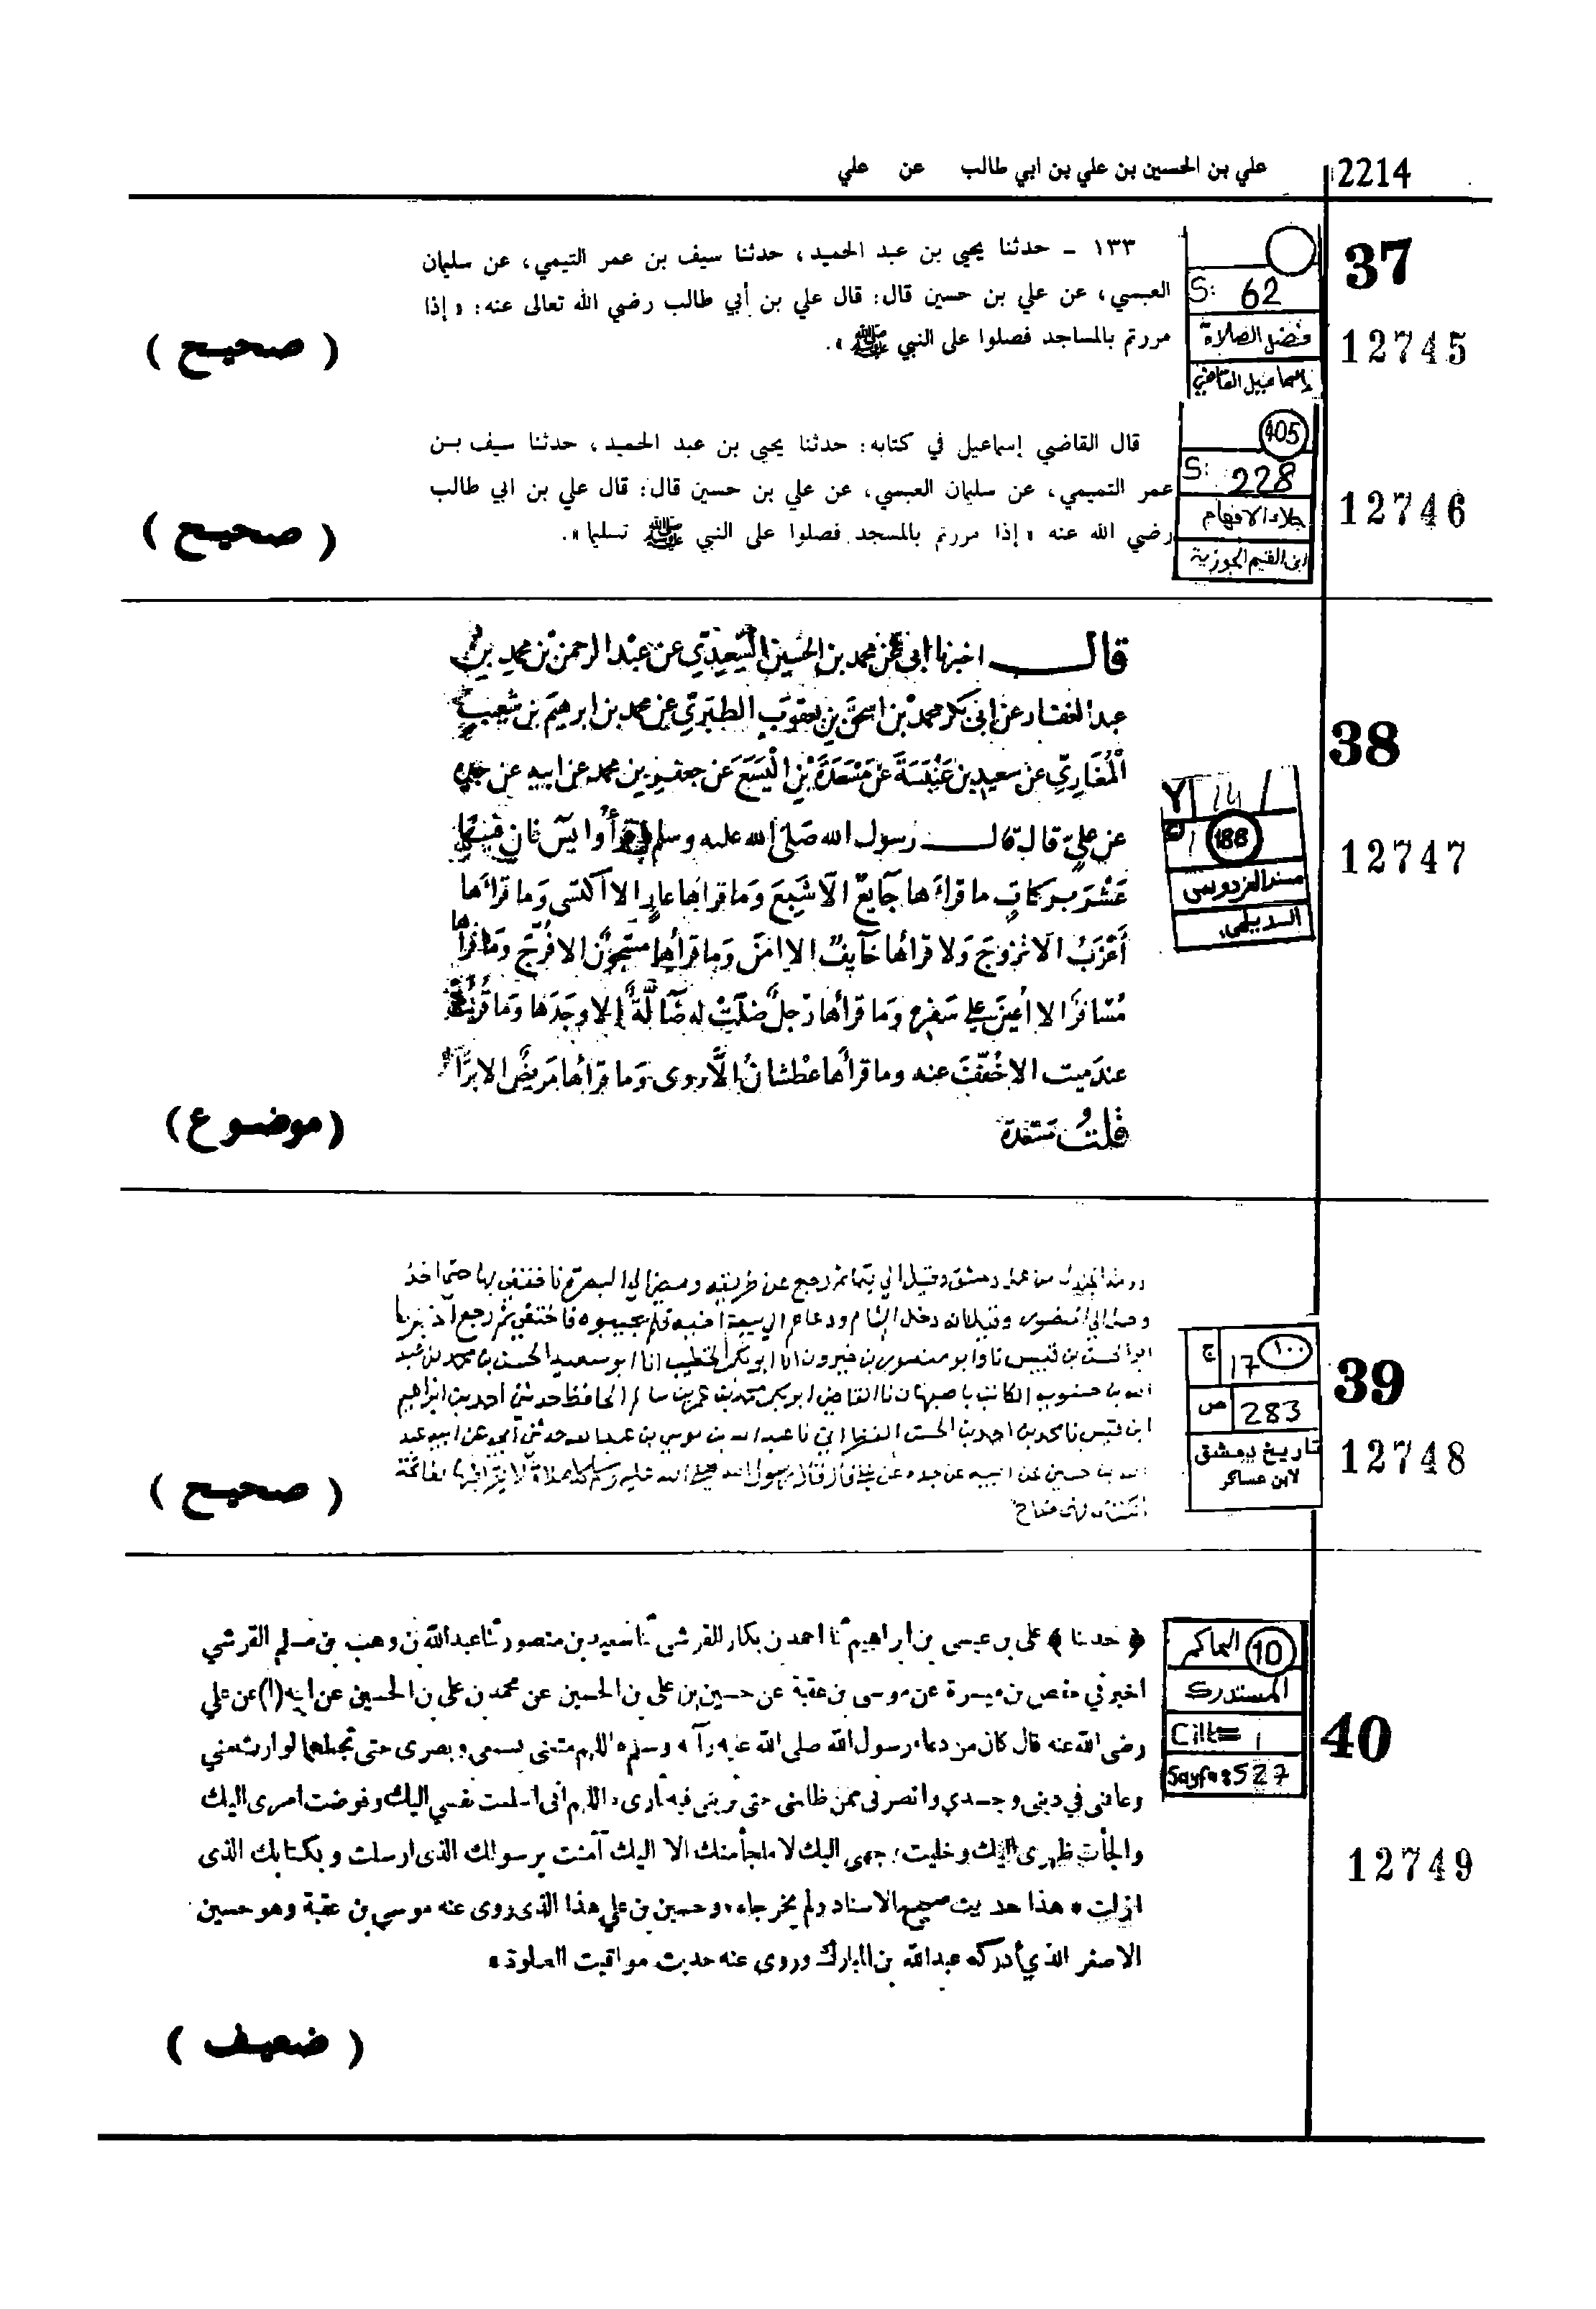 2214 علي بن الحسين بن علي بن ابي طالب عن علي
37
12745
S: 62
فضل الصلاة
إسماعيل القاضي
١٣٣ - حدثنا يحيى بن عبد الحميد، حدثنا سيف بن عمر التيمي، عن سليمان
العبسي، عن علي بن حسين قال: قال علي بن أبي طالب رضي الله تعالى عنه: « إذا
مررتم بالمساجد فصلوا على النبي ﷺ ».
( صحيح )
12746
405
S: 228
جلاء الافهام
ابن القيم الجوزية
قال القاضي إسماعيل في كتابه: حدثنا يحيى بن عبد الحميد، حدثنا سيف بن
عمر التميمي، عن سليمان العبسي، عن علي بن حسين قال: قال علي بن ابي طالب
رضي الله عنه « إذا مررتم بالمسجد فصلوا على النبي ﷺ تسليما ».
( صحيح )
38
12747
188
مسند الفردوسي
الديلمي
قال اخبرنا ابي عن محمد بن الحسين السعيدي عن عبد الرحمن بن محمد بن
عبد الغفار عن ابي بكر محمد بن اسحق بن يعقوب الطبري عن محمد بن ابرهيم بن شعيب
الْغَازِيّ عن سعيد بن عَنْبَسَةَ عن مَسْعَدَةَ بْنِ الْيَسَعَ عن جعفر بن محمد عن ابيه عن جده
عن علي قال قال رسول الله صلى الله عليه وسلم اقرأوا يس فان فيها
عَشْرَ بركاتٍ ما قراءَها جَايعٌ الّا شَبِعَ وَما قراها عارٍ الا اكتسى وَما قراءَها
أعْزَبُ الا تزوجَ وَلا قراها خَآيِفٌ الا امنَ وَما قرأها مسجونٌ الا فُرّجَ وَما قرأها
مُسَافرٌ الا اُعِينَ على سَفرِه وَما قرأها رَجلٌ ضلّتْ له ضَالّةٌ إلا وجَدَها وَما قُرِئَت
عند ميت الا خُفّفَ عنه وما قرأها عطشانُ إلّا روى وَما قرأها مريضٌ الا برَأَ
قلتُ مَسْعَدة
(موضوع)
39
12748
١٠٠
ج 17
ص 283
تاريخ دمشق
لابن عساكر
من عمل دمشق وقيل الي رجع عن طريقه ومضى الى البصرة فاختفى بها حتى اخذ
وحمل الى المنصور وقيل انه دخل الشام ودعاهم الي بيعة اخيه فلم يجيبوه فاختفى ثم رجع اخبرنا
ابو الحسن بن قبيس نا وابو منصور بن خيرون انا ابو بكر الخطيب انا ابو سعيد الحسن بن محمد بن عبد
الله بن حسنويه الكاتب باصبهان نا القاضي ابو بكر محمد بن عمر بن سالم الحافظ حدثني احمد بن ابراهيم
ابن قيس نا محمد بن احمد بن الحسن نا عبد الله بن موسى بن عبد الله حدثني ابي عن ابيه عبد
الله بن حسين عن ابيه عن جده عن علي قال قال رسول الله صلى الله عليه وسلم كل صلاة لا يقرا فيها بفاتحة
الكتاب فهي خداج
( صحيح )
40
12749
10 الحاكم
المستدرك
Cilt= 1
Sayfa: 527
﴿ حدثنا ﴾ علي بن عيسى بن ابراهيم ثنا احمد بن بكار القرشي ثنا سعيد بن منصور ثنا عبدالله بن وهب بن مسلم القرشي
اخبرني حفص بن ميسرة عن موسى بن عقبة عن حسين بن علي بن الحسين عن محمد بن علي بن الحسين عن ابيه (١) عن علي
رضى الله عنه قال كان من دعاء رسول الله صلى الله عليه وآله وسلم * اللهم متعنى بسمعى وبصرى حتى تجعلهما الوارث مني
وعافنى في دينى وجسدي وانصرنى ممن ظلمنى حتى تريني فيه ثارى * اللهم انى اسلمت نفسي اليك وفوضت امرى اليك
والجأت ظهرى اليك وخليت وجهى اليك لا ملجأ منك الا اليك آمنت برسولك الذى ارسلت وبكتابك الذى
انزلت * هذا حديث صحيح الاسناد ولم يخرجاه * وحسين بن علي هذا الذى روى عنه موسى بن عقبة وهو حسين
الاصغر الذي أدركه عبدالله بن المبارك وروى عنه حديث مواقيت الصلوة *
( ضعيف )